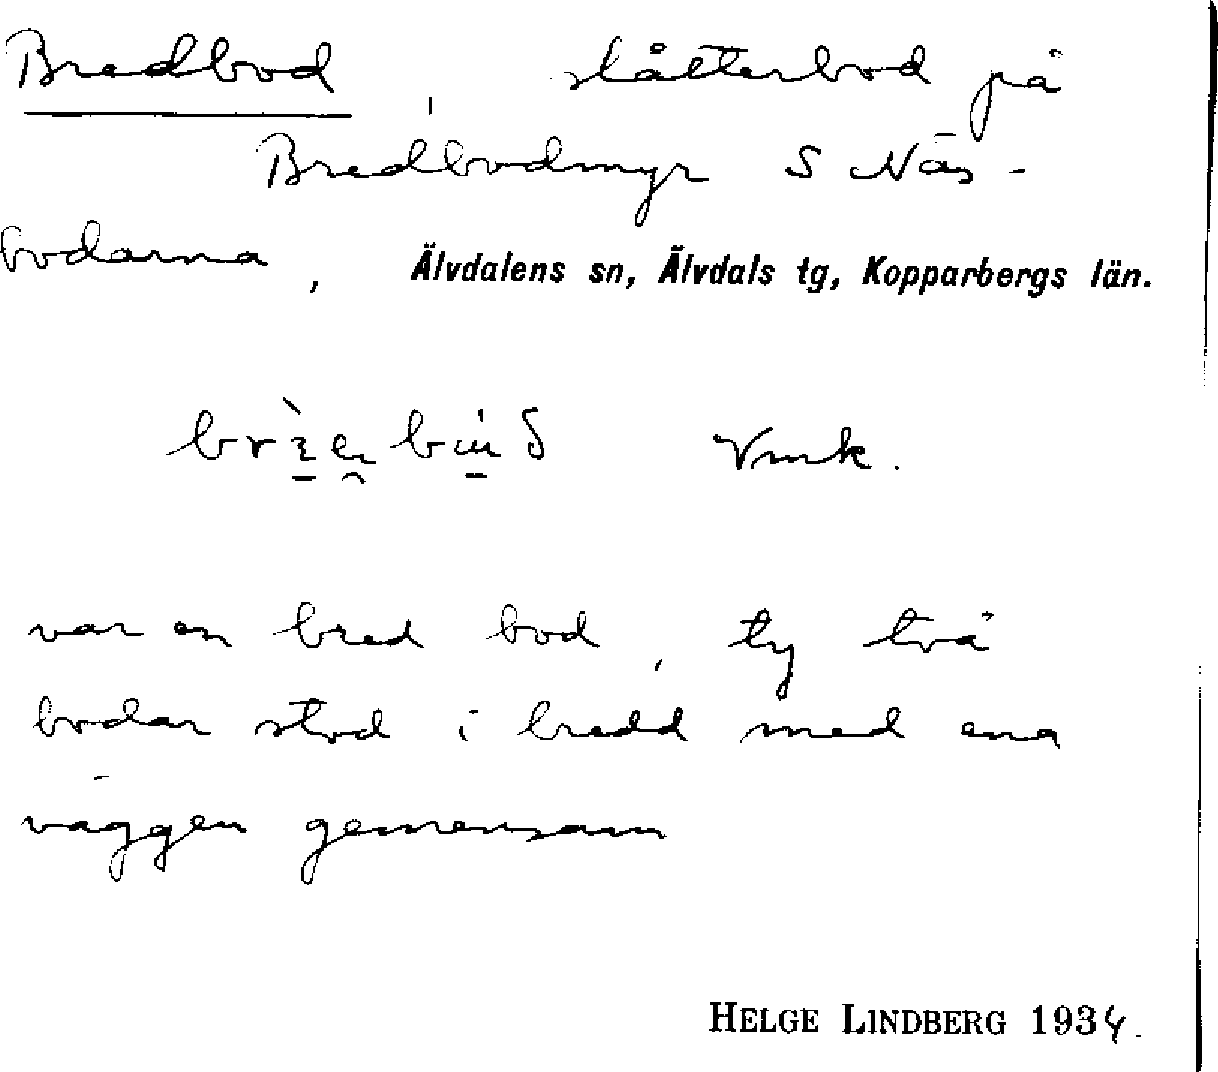 Bredbod, slåtterbod på
Bredbodmyr S Näs-
bodarna, Älvdalens sn, Älvdals tg, Kopparbergs län.
Vmk.
var en bred bod, ty två
bodar stod i bredd med ena
väggen gemensam
HELGE LINDBERG 1934.